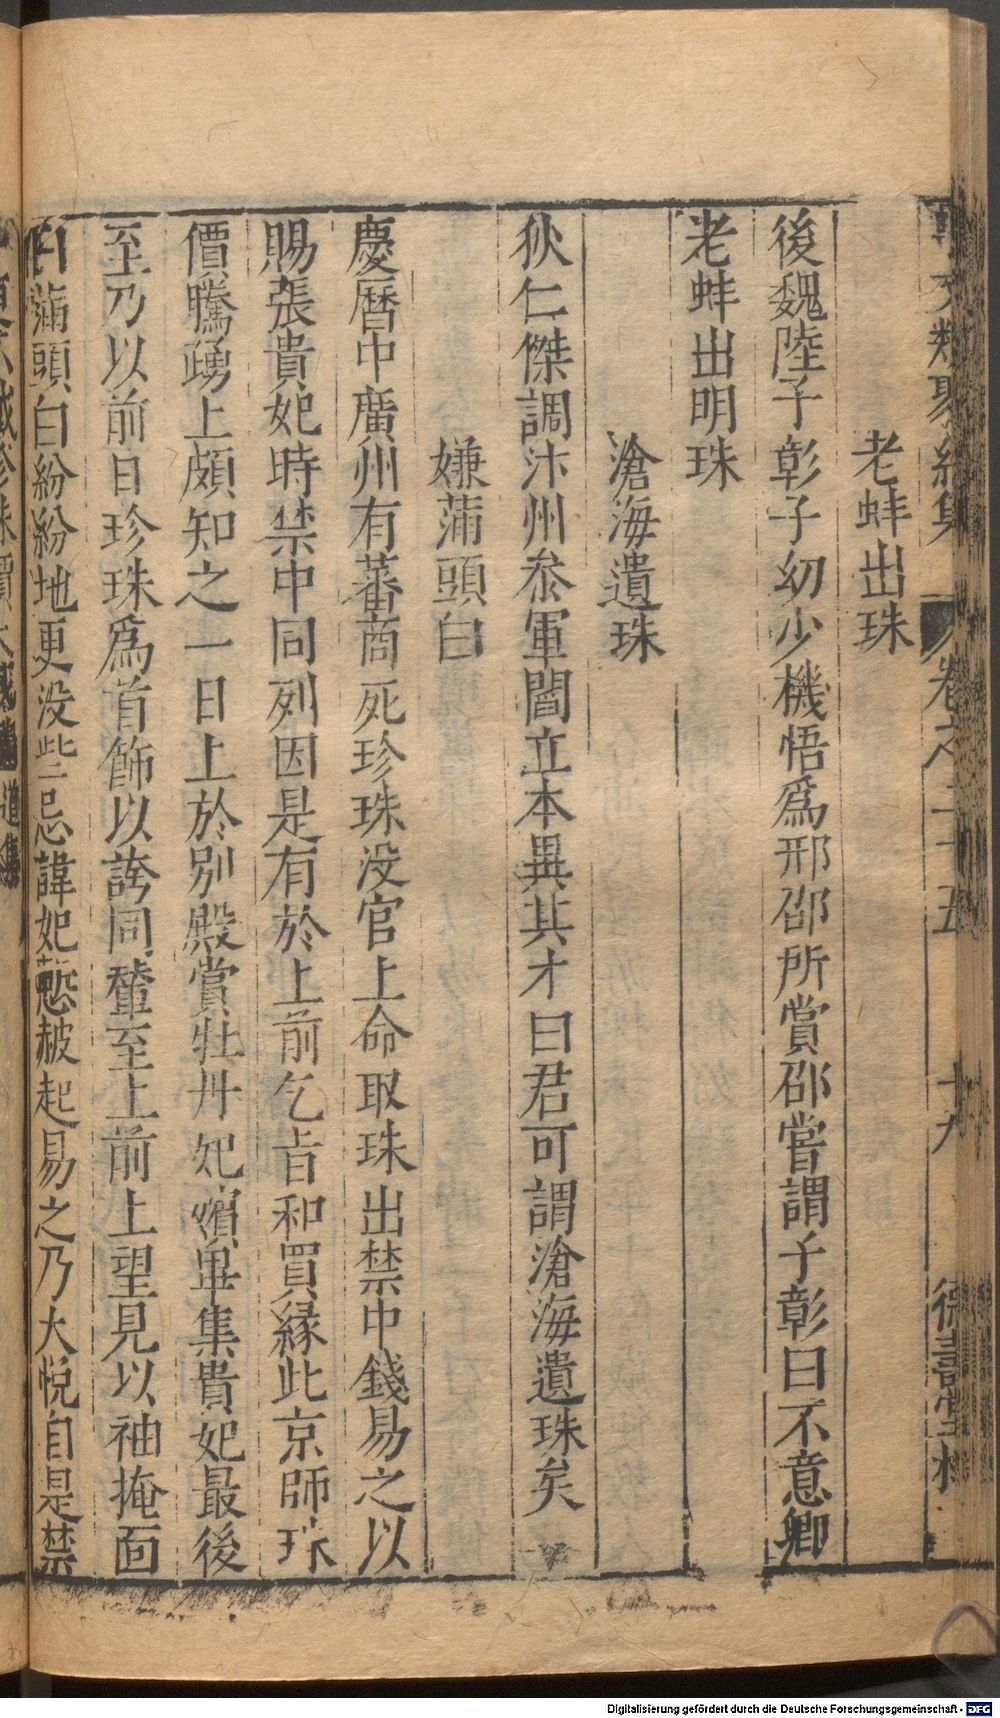 事文類聚續集 卷之二十五 十九 德壽堂梓
老蚌出珠
後魏陸子彰子幼少機悟爲邢邵所賞邵嘗謂子彰曰不意卿
老蚌出明珠
滄海遺珠
狄仁傑調汴州叅軍閻立本異其才曰君可謂滄海遺珠矣
嫌蒲頭白
慶曆中廣州有蕃商死珍珠没官上命取珠出禁中錢易之以
賜張貴妃時禁中同列因是有於上前乞旨和買縁此京師珠
價騰踴上頗知之一日上於別殿賞牡丹妃嬪畢集貴妃最後
至乃以前日珍珠爲首飾以誇同輦至上前上望見以袖掩面
曰蒲頭白紛紛地更没些忌諱妃慙赧起易之乃大悅自是禁
Digitalisierung gefördert durch die Deutsche Forschungsgemeinschaft - DFG